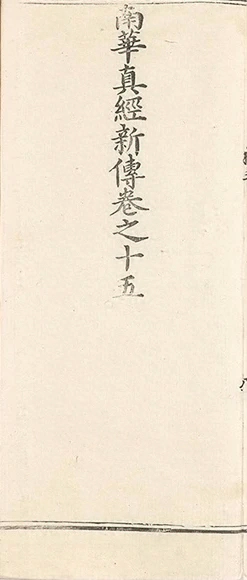 南華真經新傳卷之十五